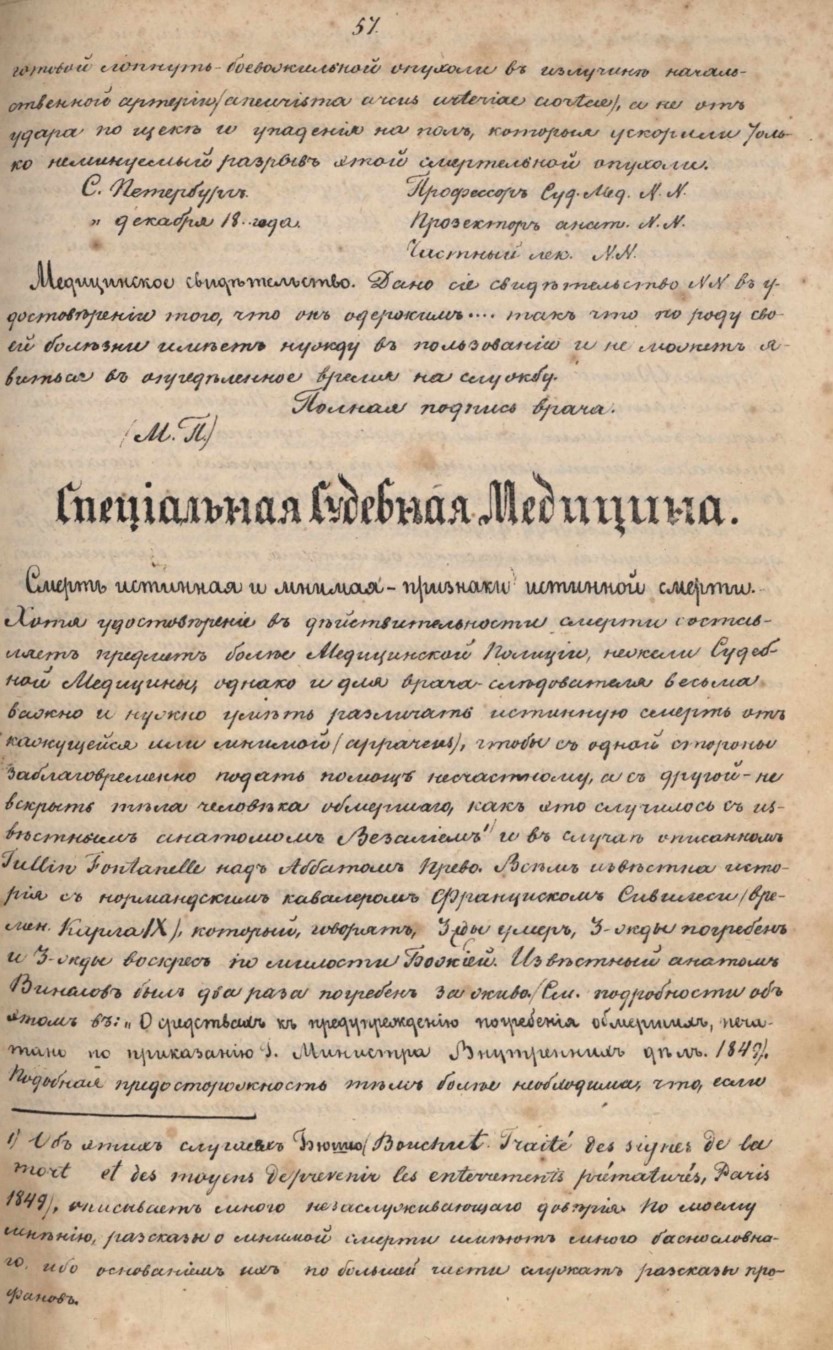 57.
готовой лопнуть боевожильной опухоли въ излучинѣ началь-
ственной артеріи (aneurisma arcus arteriae aortae), а не отъ
удара по щекѣ и упаденія на полъ, которыя ускорили толь-
ко неминуемый разрывъ этой смертельной опухоли.
С. Петербургъ. Профессоръ Суд. Мед. N. N.
" декабря 18.. года. Прозекторъ анат. N. N.
Частный лек. N. N.
Медицинское свидѣтельство. Дано сіе свидѣтельство NN въ у-
достовѣреніи того, что онъ одержимъ .... такъ что по роду сво-
ей болѣзни имѣетъ нужду въ пользованіи и не можетъ я-
виться въ опредѣленное время на службу.
Полная подпись врача.
(М. П.)
Спеціальная Судебная Медицина.
Смерть истинная и мнимая - признаки истинной смерти.
Хотя удостовѣреніе въ дѣйствительности смерти состав-
ляетъ предметъ болѣе Медицинской Полиціи, нежели Судеб-
ной Медицины, однако и для врача-слѣдователя весьма
важно и нужно умѣть различать истинную смерть отъ
кажущейся или мнимой (apparens), чтобы съ одной стороны
заблаговременно подать помощь несчастному, а съ другой - не
вскрыть тѣла человѣка обмершаго, какъ это случилось съ из-
вѣстнымъ анатомомъ Везаліемъ ¹) и въ случаѣ описанномъ
Fontanelle надъ Аббатомъ Прево. Всѣмъ извѣстна исто-
рія съ нормандскимъ кавалеромъ Францискомъ Сивилеси (вре-
мен. Карла IX), который, говорятъ, 3жды умеръ, 3-жды погребенъ
и 3-жды воскресъ по милости Божіей. Извѣстный анатомъ
Винсловъ былъ два раза погребенъ за живо. (См. подробности объ
этомъ въ: „О средствахъ къ предупрежденію погребенія обмершихъ, печа-
тано по приказанію г. Министра Внутреннихъ дѣлъ. 1849).
Подобная предосторожность тѣмъ болѣе необходима, что, если
1) Объ этихъ случаяхъ Бюшю (Bouchut. Traité des signes de la
mort et des moyens de prevenir les enterrements prématurés, Paris
1849), описываетъ много незаслуживающаго довѣрія. По моему
мнѣнію, разсказы о мнимой смерти имѣютъ много баснословна-
го, ибо основаніемъ ихъ по большей части служатъ разсказы про-
фановъ.